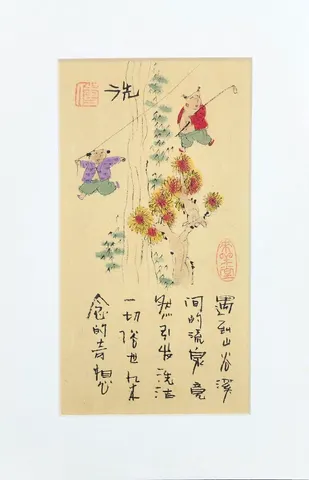 洗
遇到山谷溪
间的流泉竟
然引发洗去
一切俗世杂
念的奇想